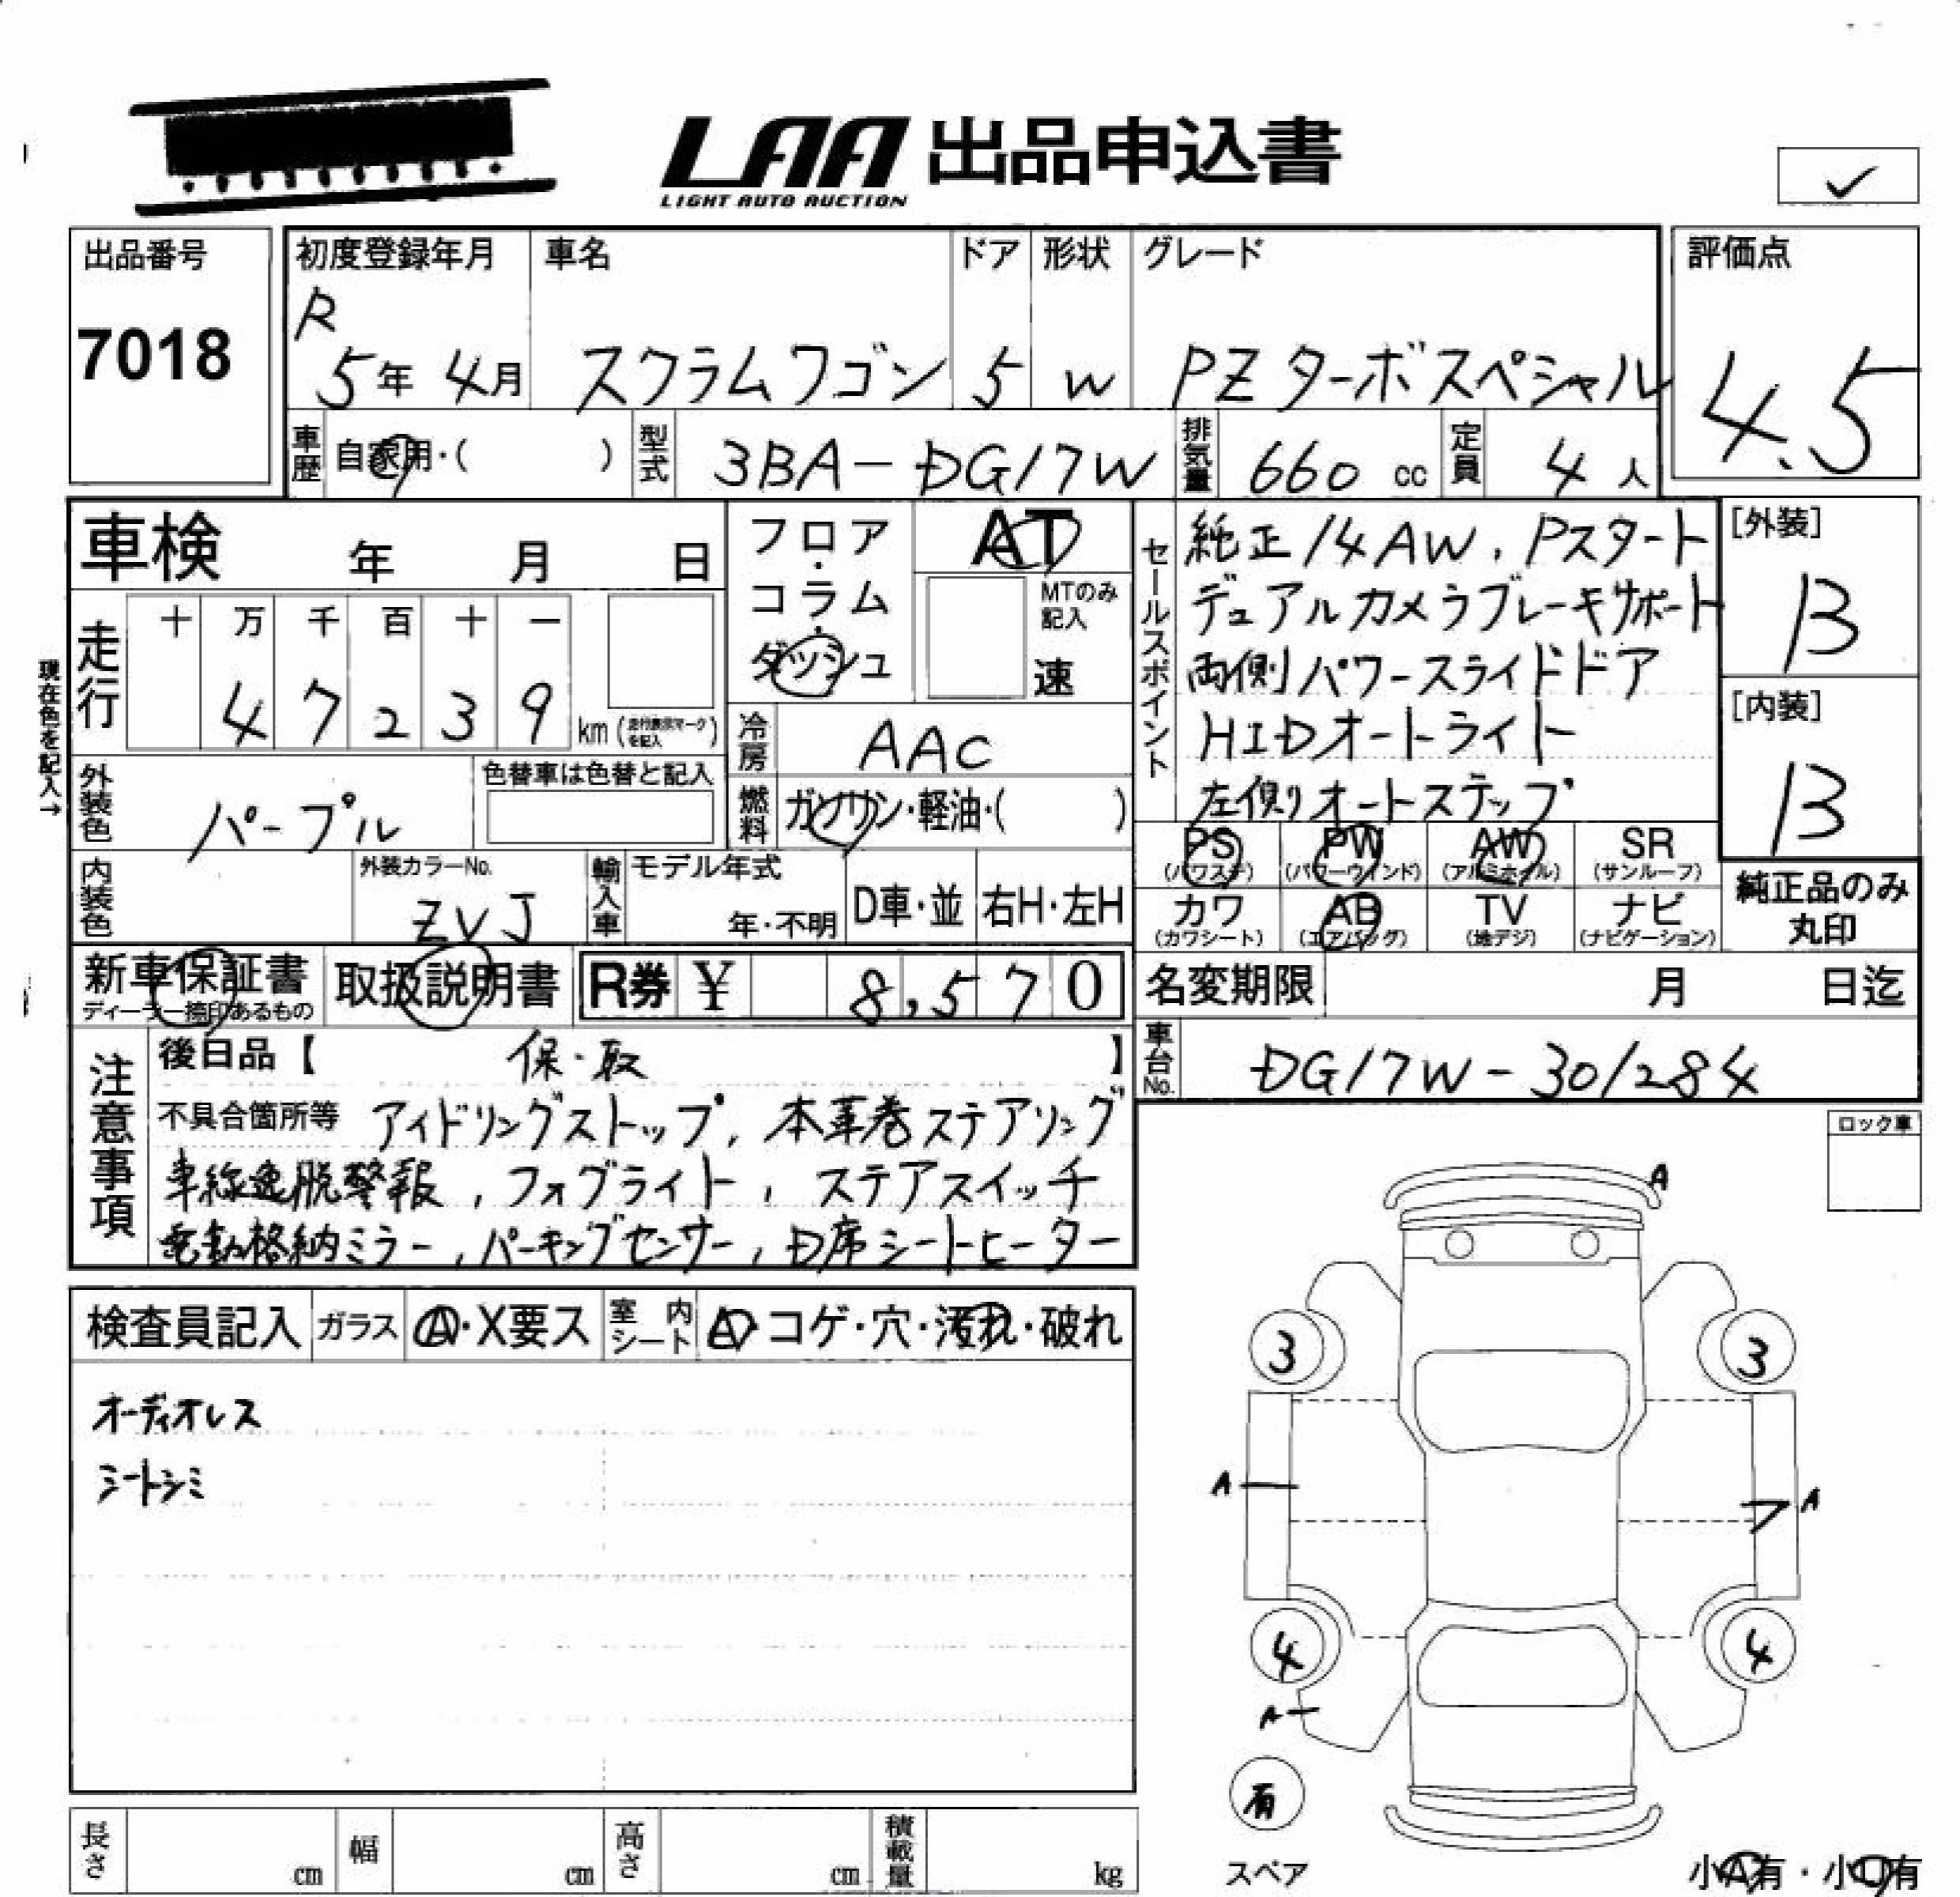 LAA 出品申込書
LIGHT AUTO AUCTION
出品番号
7018
初度登録年月
R
5年 4月
車名
スクラムワゴン
ドア
5
形状
W
グレード
PZターボスペシャル
評価点
4.5
車歴 自家用・( )
型式 3BA-DG17W
排気量 660 cc
定員 4 人
車検 年 月 日
フロア・コラム・ダッシュ
AT
MTのみ記入
速
セールスポイント
純正14AW、Pスタート
デュアルカメラブレーキサポート
両側パワースライドドア
HIDオートライト
左側オートステップ
[外装]
B
[内装]
B
現在色を記入→
走行
十 万 千 百 十 一
4 7 2 3 9 km (走行表示マークを記入)
冷房 AAC
外装色 パープル
色替車は色替と記入
燃料 ガソリン・軽油・( )
PS (パワステ)
PW (パワーウインド)
AW (アルミホイル)
SR (サンルーフ)
カワ (カワシート)
AB (エアバッグ)
TV (地デジ)
ナビ (ナビゲーション)
純正品のみ丸印
内装色
外装カラーNo.
ZVJ
輸入車
モデル年式
年・不明
D車・並
右H・左H
新車保証書
ディーラー捺印あるもの
取扱説明書
R券 ¥ 8,570
名変期限 月 日迄
車台No. DG17W-301284
注意事項
後日品【 保・取 】
不具合箇所等 アイドリングストップ, 本革巻ステアリング
車線逸脱警報, フォグライト, ステアスイッチ
電動格納ミラー, パーキングセンサー, D席シートヒーター
ロック車
検査員記入
ガラス A・X要ス
室内シート A・コゲ・穴・汚れ・破れ
オーディオレス
シートシミ
A
3 3
A A
4 4
A
有
スペア
小A有・小U有
長さ cm
幅 cm
高さ cm
積載量 kg